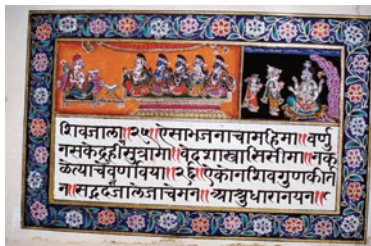 शिवजाला॥२५॥ऐसाभजनाचामहिमा॥वर्णु
नसकेद्रहीसुत्रामा॥वेदशास्त्रासिसीमा॥नक
ळेत्याचवर्णाविया॥२६॥ऐकोनशिवगुणकीर्त
न॥सद्गदजालेजाचेमन॥आश्रुधारानयन॥